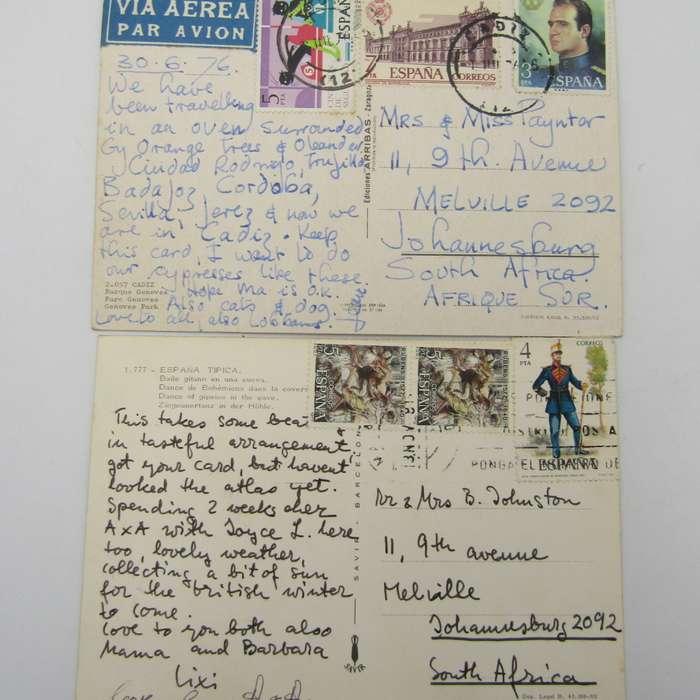 VIA AEREA
PAR AVION
5 PTA
ESPAÑA
7 PTA
ESPAÑA CORREOS
CADIZ
(12)
3 PTA
ESPAÑA
30.6.76.
We have
been travelling
in an oven surrounded
by Orange Trees & Oleander
Ciudad Rodrigo, Trujillo
Badajoz Cordoba,
Sevilla, Jerez & now we
are in Cadiz. Keep
this card, I want to do
our cypresses like these.
Hope Ma is O.K.
Also cats & dog.
Love to all, also
2.057 CADIZ
Parque Genoves
Parc Genoves
Genoves Park
Ediciones ARRIBAS - Zaragoza
Mrs & Miss Payntor
11, 9th. Avenue
MELVILLE 2092
Johannesburg
South Africa.
AFRIQUE SUR.
1.777 - ESPAÑA TIPICA.
Baile gitano en una cueva.
Danse de Bohémiens dans la cavern
Dance of gipsies in the cave.
Zigeunertanz in der Höhle.
5 PTA
ESPAÑA
5 PTA
ESPAÑA
CORREOS
4 PTA
ESPAÑA
PONGA EL
This takes some beat
in tasteful arrangement,
got your card, but havent
looked the atlas yet.
Spending 2 weeks
AxA with Joyce L. here
too, lovely weather,
collecting a bit of sun
for the british winter
to come.
Love to you both also
Mama and Barbara
Lixi
SAVIR - BARCELONA
SAVIR
Mr & Mrs B. Johnston
11, 9th avenue
Melville
Johannesburg 2092
South Africa